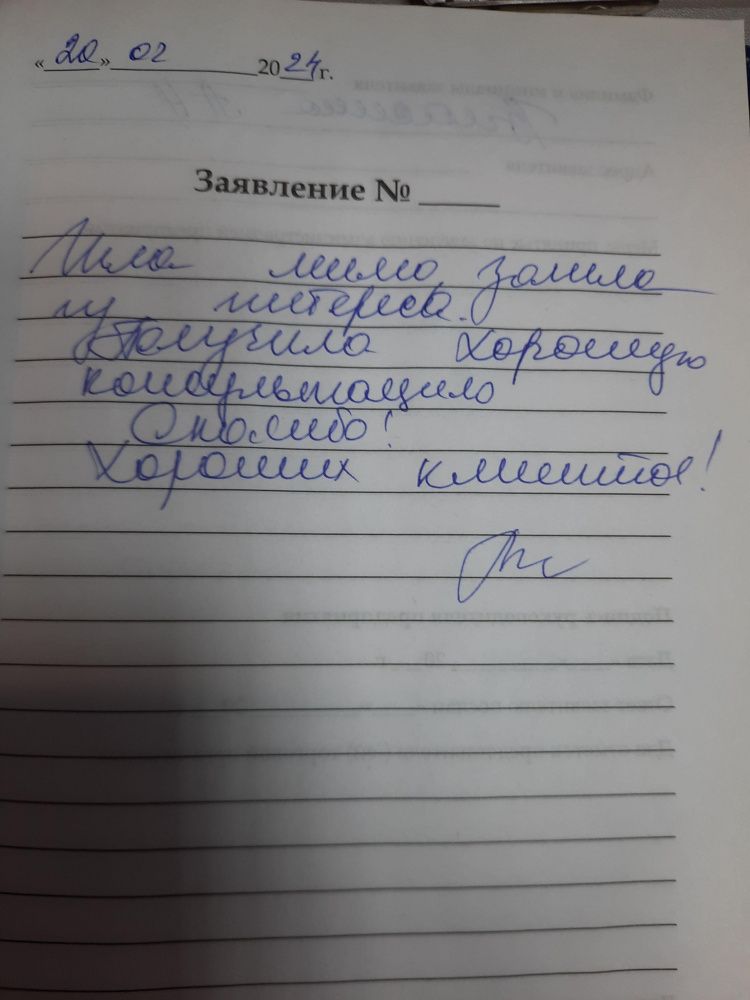 «20» 02 2024 г.
Заявление № ____
Шла мимо, зашла
из интереса.
Получила хорошую
консультацию
Спасибо!
Хороших клиентов!